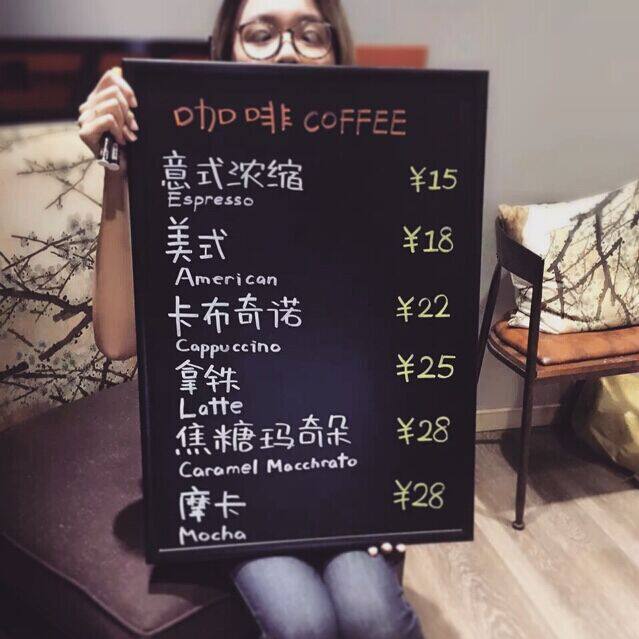 咖啡 COFFEE
意式浓缩 ¥15
Espresso
美式 ¥18
American
卡布奇诺 ¥22
Cappuccino
拿铁 ¥25
Latte
焦糖玛奇朵 ¥28
Caramel Macchrato
摩卡 ¥28
Mocha